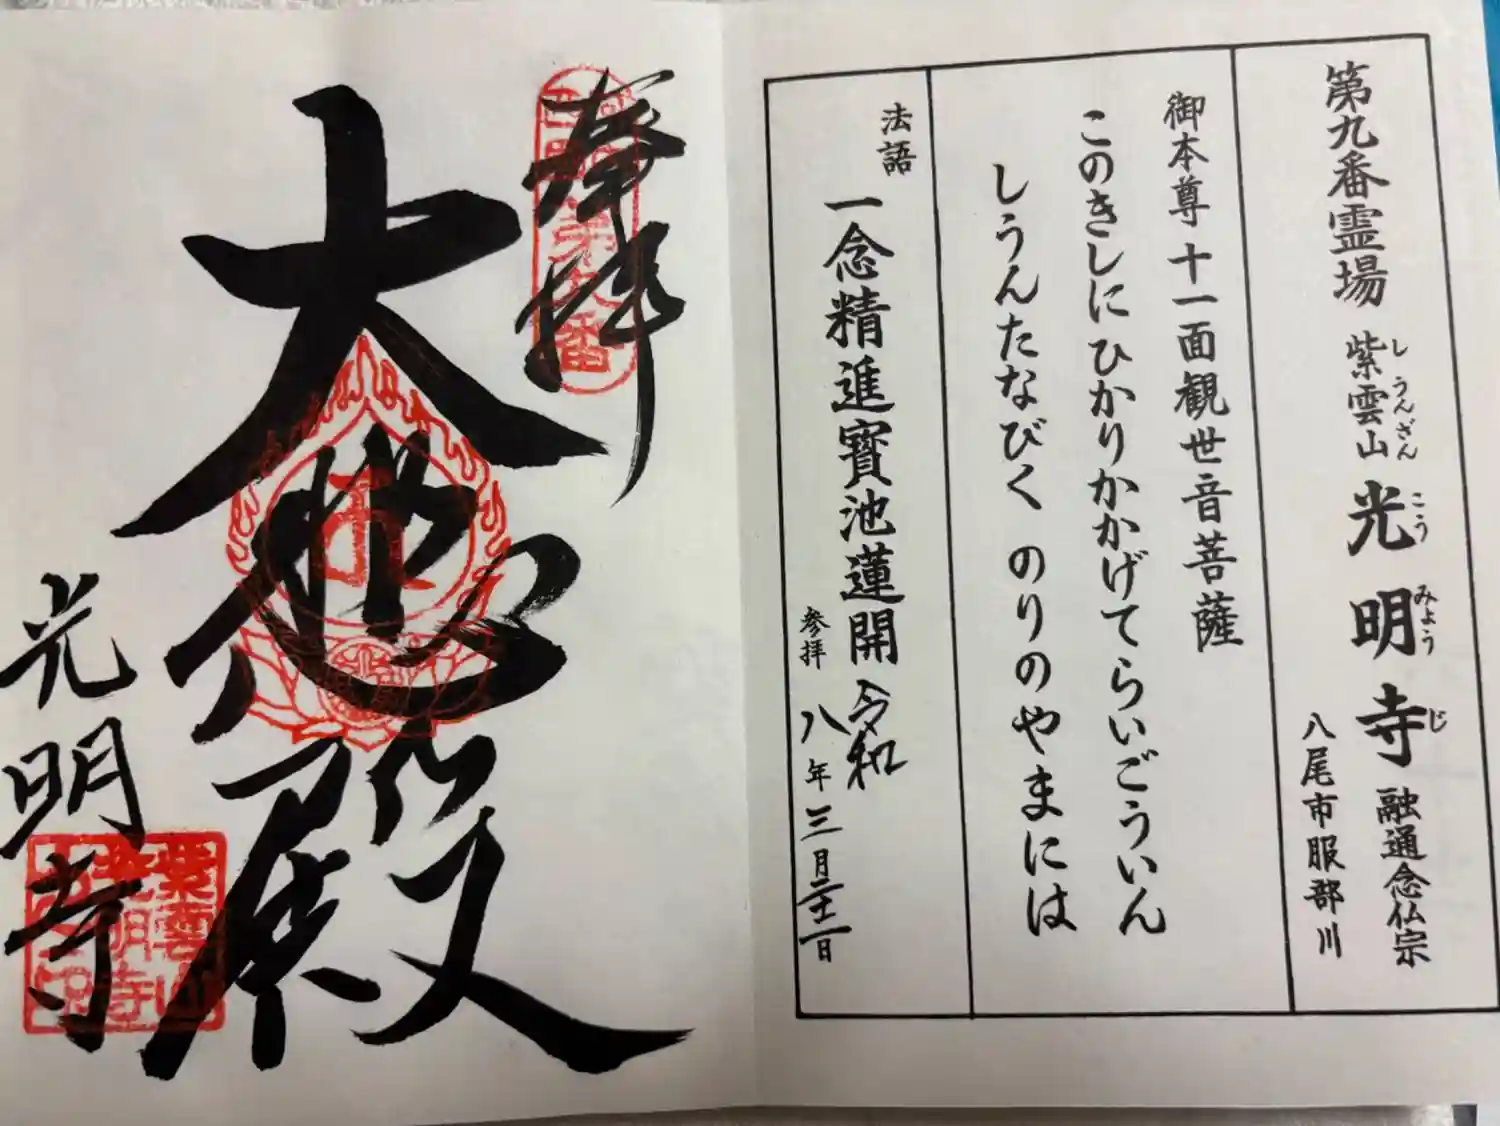 第九番霊場 紫雲山 光明寺 融通念仏宗
しうんざん こうみょうじ
八尾市服部川
御本尊 十一面観世音菩薩
このきしにひかりかかげてらいごういん
しうんたなびく のりのやまには
法語 一念精進寶池蓮開
参拝 令和八年三月二十二日
奉拝
第九番
大悲殿
光明寺
紫雲山
光明寺